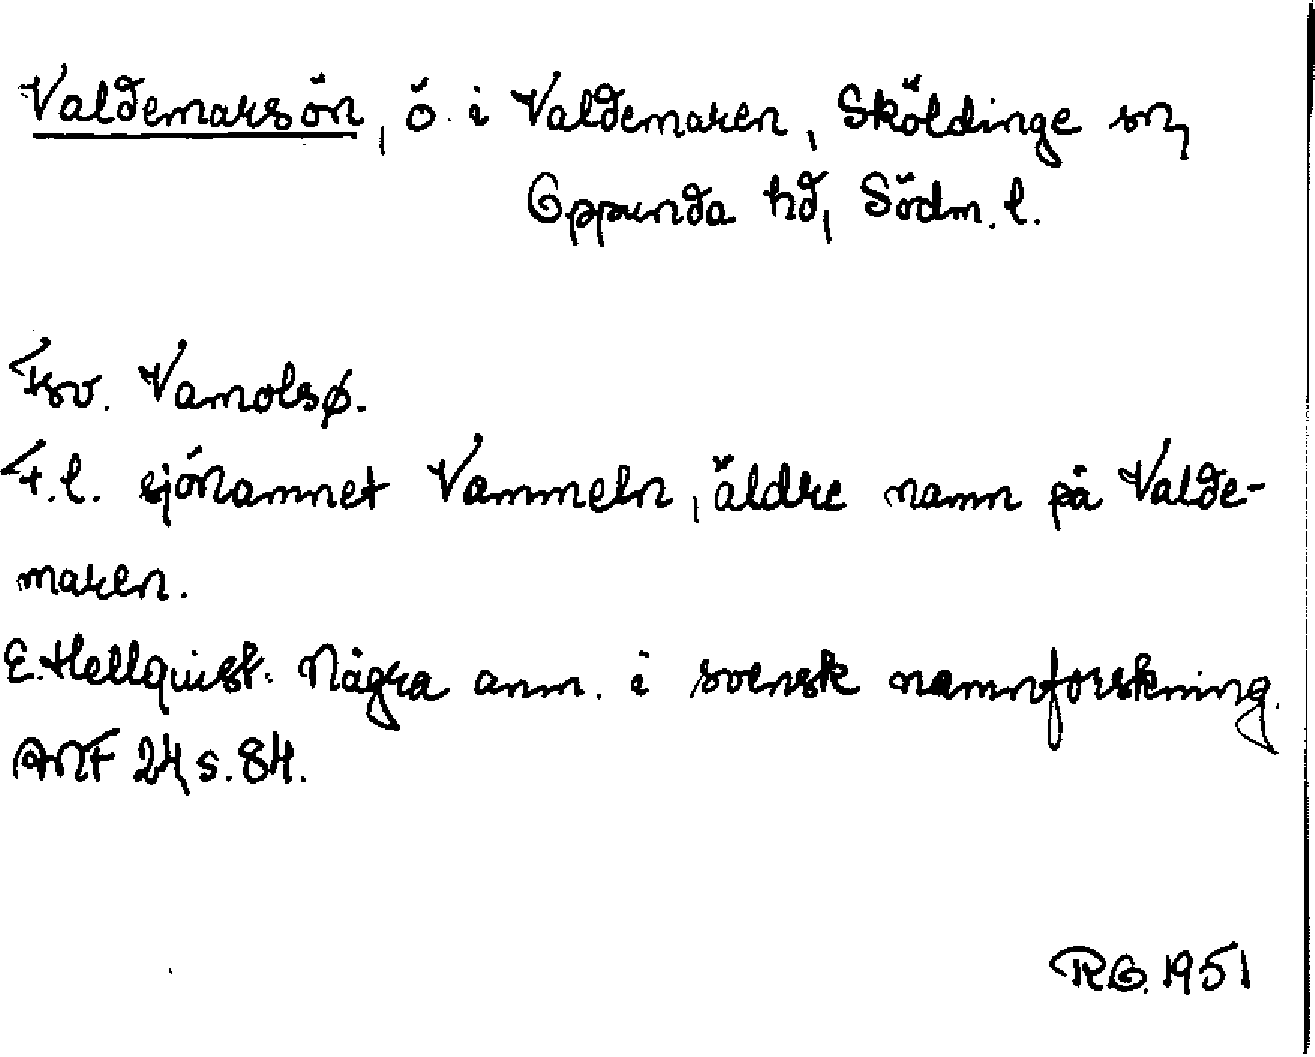 Valdemarsön, ö i Valdemaren, Sköldinge sn,
Oppunda hd, Södm. l.
Fsv. Vamolsø.
F.l. sjönamnet Vammeln, äldre namn på Valde-
maren.
E. Hellquist: Några anm. i svensk namnforskning.
ANF 24, s. 84.
R.O. 1951